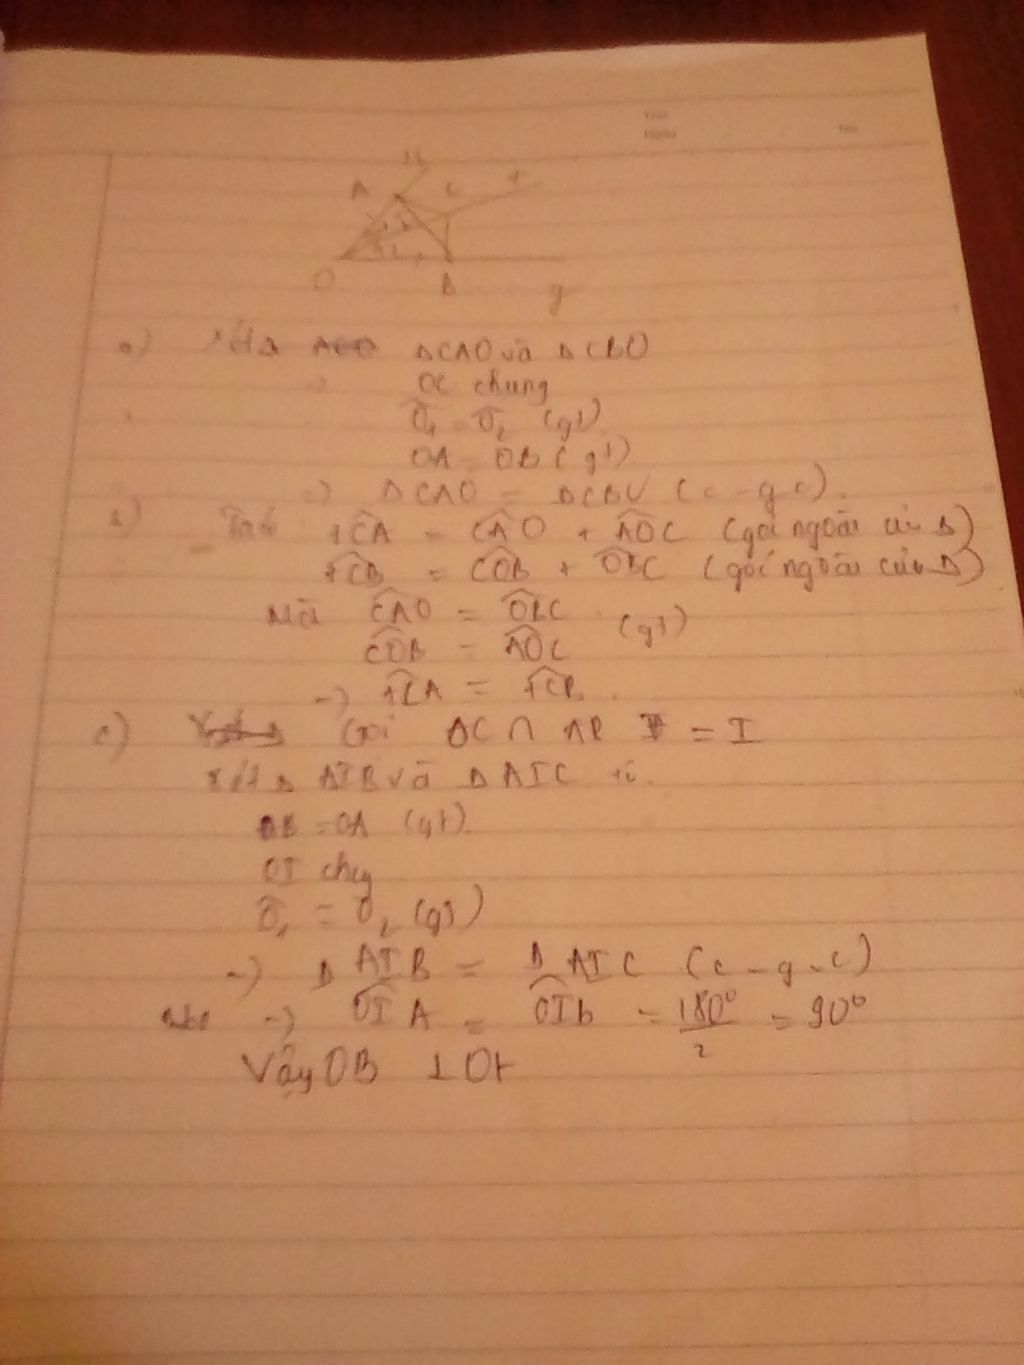 A C t
O B y
a) Xét Δ ΔCAO và ΔCBO
OC chung
Ô₁ = Ô₂ (gt)
OA = OB (gt)
=) ΔCAO = ΔCBO (c-g-c).
b) tCA = CAO + AOC (góc ngoài của Δ)
tCB = COB + OBC (góc ngoài của Δ)
Mà CAO = OBC
COB = AOC (gt)
=) tCA = tCB.
c) Gọi OC ∩ AB = I
Xét Δ AIB và Δ AIC có.
OB = OA (gt).
OI chg
Ô₁ = Ô₂ (gt)
=) Δ AIB = Δ AIC (c-g-c)
=) OIA = OIb = 180°/2 = 90°
Vậy OB ⊥ Ot